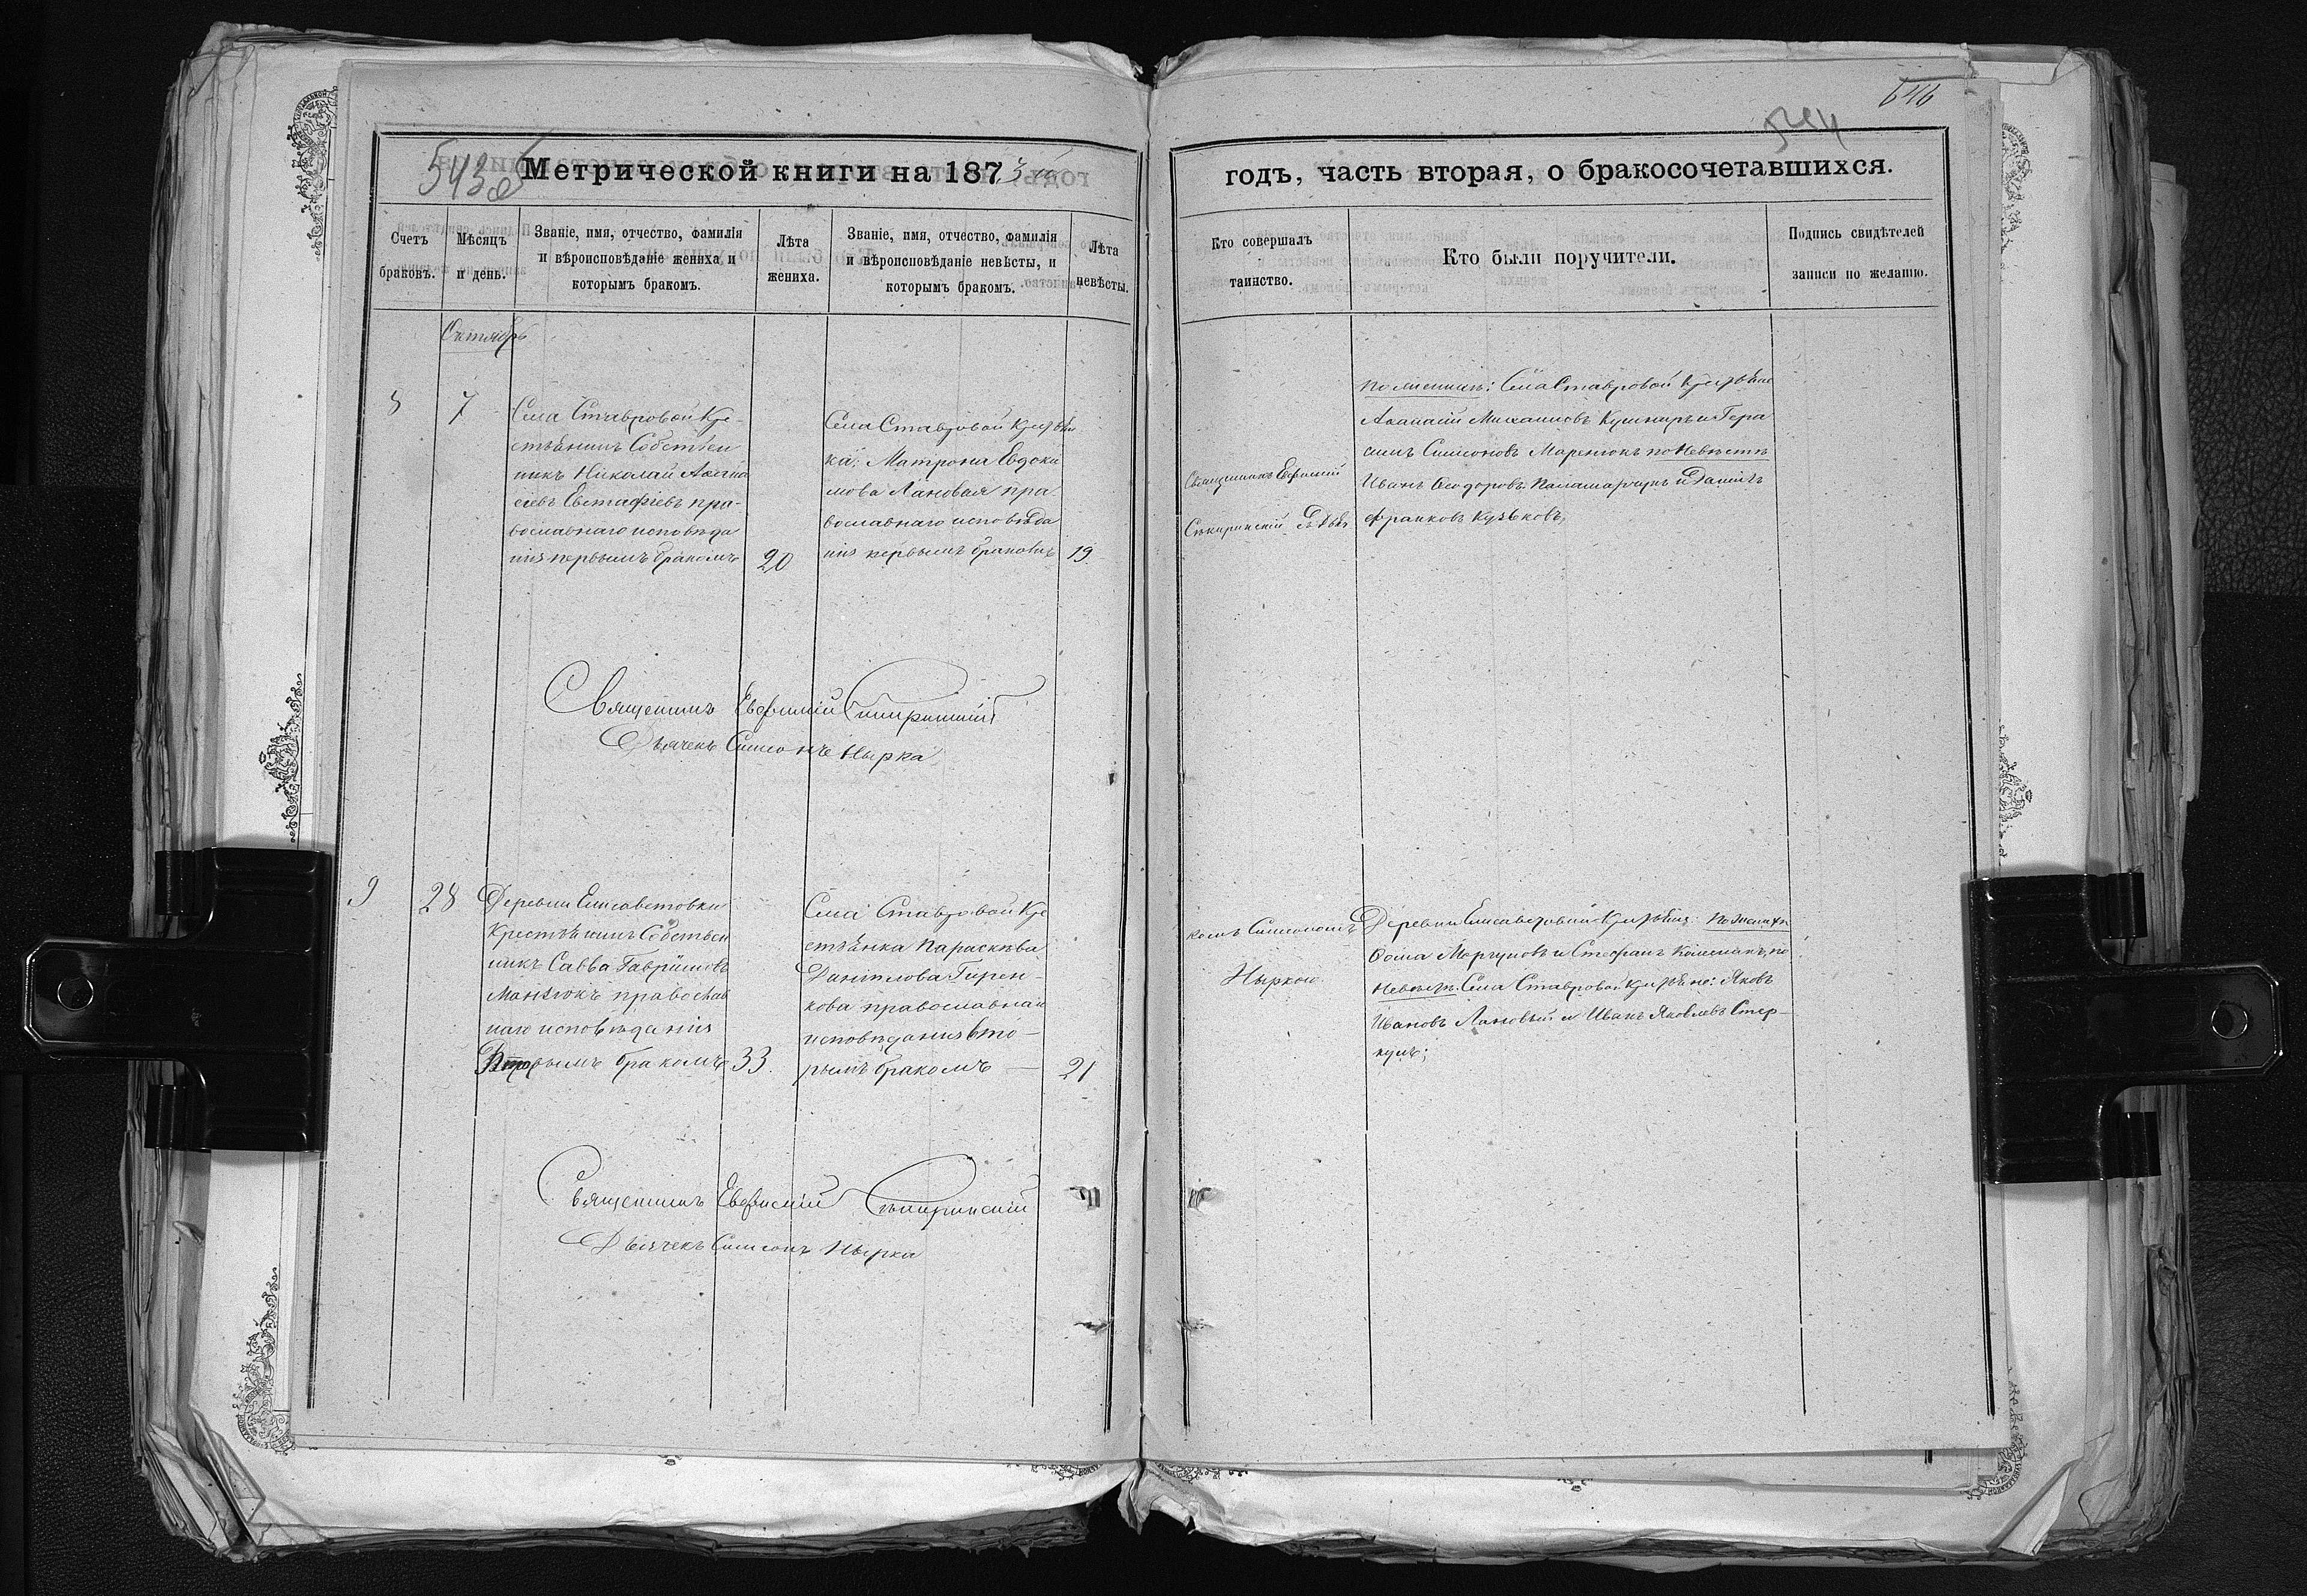 646
544
543об
Метрической книги на 1873й
годъ, часть вторая, о бракосочетавшихся.
Счетъ браковъ.
Мѣсяцъ и день.
Званіе, имя, отчество, фамилія
и вѣроисповѣданіе жениха и
которымъ бракомъ.
Лѣта жениха.
Званіе, имя, отчество, фамилія
и вѣроисповѣданіе невѣсты, и
которымъ бракомъ.
Лѣта невѣсты.
Кто совершалъ
таинство.
Кто были поручители.
Подпись свидѣтелей
записи по желанію.
Октябрь
8
7
Села Ставровой Кре-
стьянинъ Собствен
никъ Николай Афана
сіевъ Евстафіевъ пра-
вославнаго исповѣда
нія первымъ бракомъ
20
Села Ставровой
ка: Матрона Евдоки
мова Лановая пра-
вославнаго исповѣда
нія первымъ бракомъ
19
Священникъ Евфимій
Сѣкиринскій
по женихѣ: Села Ставровой
Афанасій Михаиловъ Кушниръ и Гера
симъ Симеоновъ Маренюкъ по Невѣстѣ
Иванъ Ѳеодоровъ Паламарчукъ и Даніилъ
Франковъ
Священникъ Евфимій Сѣкиринскій
Дьячекъ Симеонъ Нырка
9
28
Деревни Елисаветовки
Крестьянинъ Собствен
никъ Савва Гавриловъ
Манзюкъ православ
наго исповѣданія
Вторымъ бракомъ
33
Села Ставровой Кре
стьянка Параскѣва
Даніилова Гирен-
кова православнаго
исповѣданія вто-
рымъ бракомъ —
21
комъ Симеономъ
Ныркою
Деревни Елисаветовки по женихѣ
Ѳома Моргуновъ и Стефанъ по
Невѣстѣ: Села Ставровой Яковъ
Ивановъ Лановый и Иванъ Яковлевъ Стер-
кулъ;
Священникъ Евфимій Сѣкиринскій
Дьячекъ Симеонъ Нырка